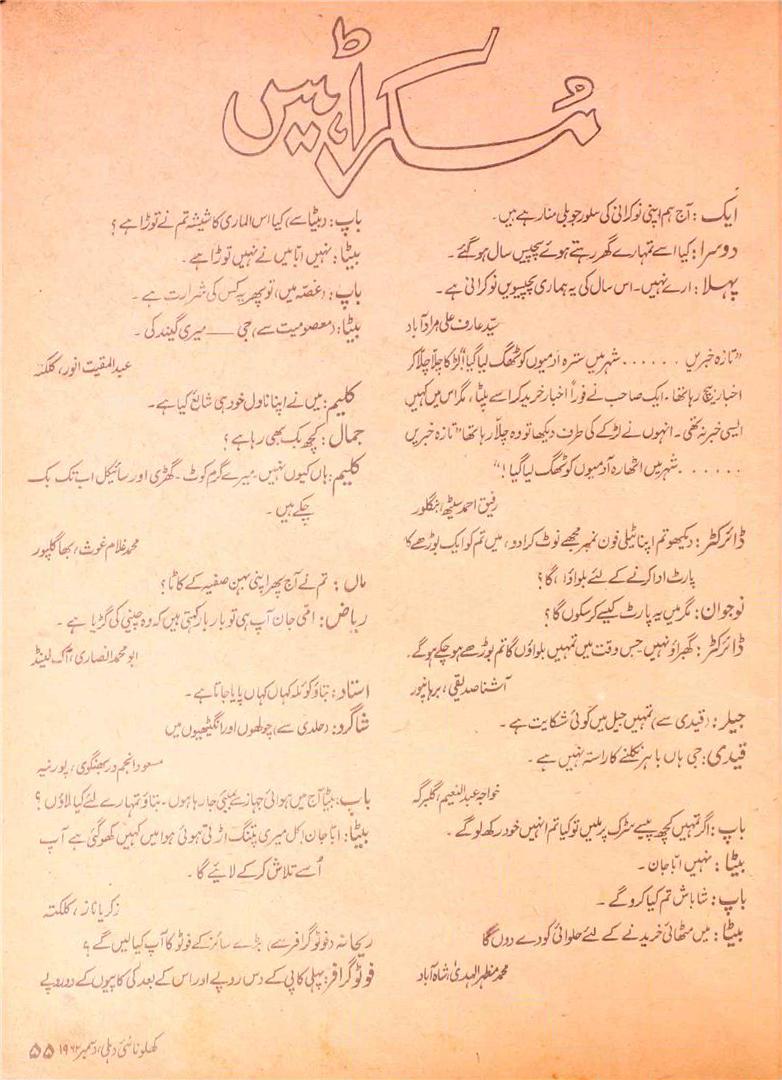 مُسکراہٹیں
ایک : آج ہم اپنی نوکرانی کی سلور جوبلی منا رہے ہیں۔
دوسرا : کیا اسے تمہارے گھر رہتے ہوئے پچیس سال ہو گئے۔
پہلا : ارے نہیں۔ اس سال کی یہ ہماری پچیسویں نوکرانی ہے۔
سیّد عارف علی مرادآباد
"تازہ خبریں ...... شہر میں سترہ آدمیوں کو ٹھگ لیا گیا" لڑکا چلّا چلّا کر
اخبار بیچ رہا تھا۔ ایک صاحب نے فوراً اخبار خرید کر اسے پلٹا، مگر اس میں کہیں
ایسی خبر نہ تھی۔ انہوں نے لڑکے کی طرف دیکھا تو وہ چلّا رہا تھا "تازہ خبریں
...... شہر میں اٹھارہ آدمیوں کو ٹھگ لیا گیا !"
رفیق احمد سیٹھ، بنگلور
ڈائرکٹر : دیکھو تم اپنا ٹیلی فون نمبر مجھے نوٹ کرا دو، میں تم کو ایک بوڑھے کا
پارٹ ادا کرنے کے لئے بلواؤں گا؟
نوجوان : مگر میں یہ پارٹ کیسے کر سکوں گا؟
ڈائرکٹر : گھبراؤ نہیں جس وقت میں تمہیں بلواؤں گا تم بوڑھے ہو چکے ہوگے۔
آشنا صدیقی، برہانپور
جیلر : (قیدی سے) تمہیں جیل میں کوئی شکایت ہے۔
قیدی : جی ہاں باہر نکلنے کا راستہ نہیں ہے۔
خواجہ عبدالنعیم، گلبرگہ
باپ : اگر تمہیں کچھ پیسے سڑک پر ملیں تو کیا تم انہیں خود رکھ لوگے۔
بیٹا : نہیں ابّا جان۔
باپ : شاباش تم کیا کروگے۔
بیٹا : میں مٹھائی خریدنے کے لئے حلوائی کو دے دوں گا
محمد مظہر الہدیٰ، شاہ آباد
باپ : (بیٹا سے) کیا اس الماری کا شیشہ تم نے توڑا ہے؟
بیٹا : نہیں ابّا میں نے نہیں توڑا ہے۔
باپ : (غصّہ میں) تو پھر یہ کس کی شرارت ہے۔
بیٹا : (معصومیت سے) جی —— میری گیند کی۔
عبدالمقیت انور، کلکتہ
کلیم : میں نے اپنا ناول خود ہی شایع کیا ہے۔
جمال : کچھ بک بھی رہا ہے؟
کلیم : ہاں کیوں نہیں۔ میرے گرم کوٹ۔ گھڑی اور سائیکل اب تک بک
چکے ہیں۔
محمد غلام غوث، بھاگلپور
ماں : تم نے آج پھر اپنی بہن صفیہ کے کاٹا؟
ریاض : امّی جان آپ ہی تو بار بار کہتی ہیں کہ وہ چینی کی گڑیا ہے۔
ابو محمد انصاری، آک لینڈ
استاد : بتاؤ کوئلہ کہاں کہاں پایا جاتا ہے۔
شاگرد : (جلدی سے) چولھوں اور انگیٹھیوں میں
مسعود انجم دربھنگوی، پورنیہ
باپ : بیٹا آج میں ہوائی جہاز سے بمبئی جا رہا ہوں۔ بتاؤ تمہارے لئے کیا لاؤں؟
بیٹا : ابّا جان! کل میری پتنگ اڑتی ہوئی ہوا میں کہیں کھو گئی ہے آپ
اُسے تلاش کر کے لائیے گا۔
زکریا ناز، کلکتہ
ریحانہ (فوٹوگرافر سے) بڑے سائز کے فوٹو کا آپ کیا لیں گے؟
فوٹوگرافر : پہلی کاپی کے دس روپے اور اس کے بعد کی کاپیوں کے دو روپے
کھلونا نئی دہلی، دسمبر ۱۹۶۲ ۵۵